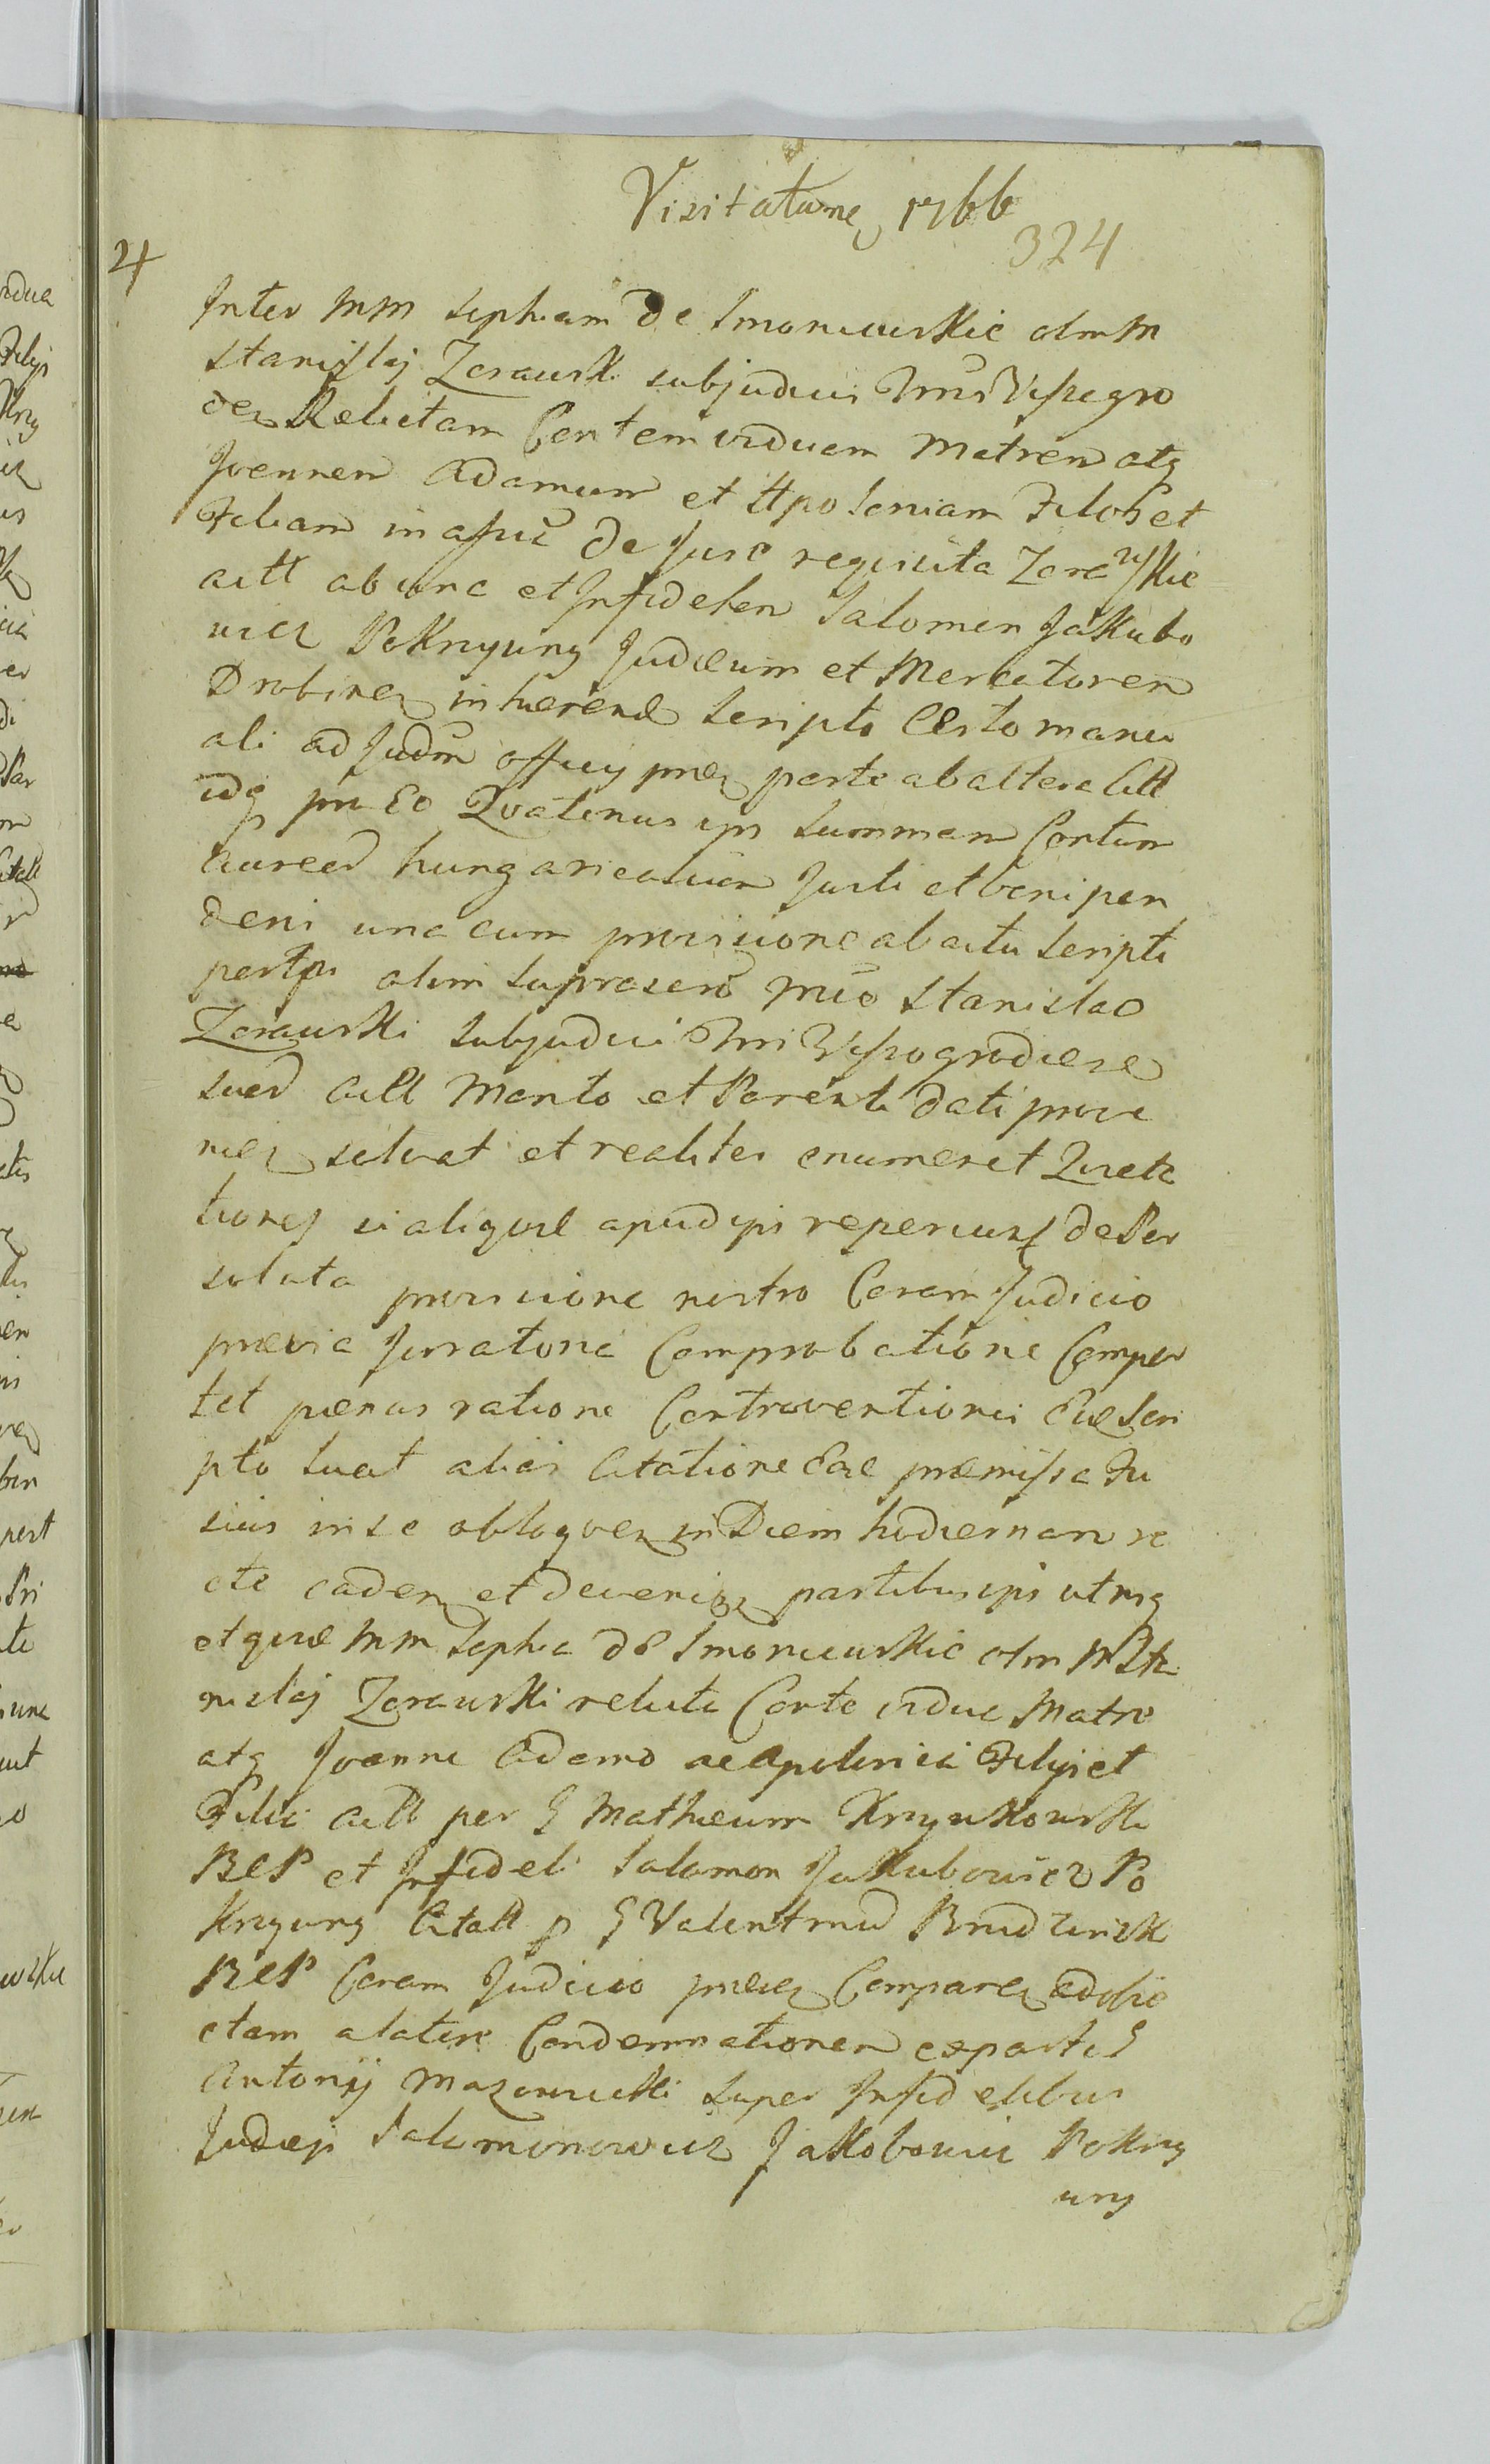 Visitatione 1766
324
4
Inter MM Sophiam de Smoniewskie olim M
Stanislaj Zerawski subjudicis Trris Vissegro
den Relictam Consortem viduam Matrem atq
Joannem Adamum et Appoloniam Filios et
Filiam in assis de Jure requisita Zerawskie
actt ab una et Infidelem Salomon Jakubo
wicz Pokrzywny Judæum et Mercatorem
Drobinen inhærend scripto certo manu
ali ad Judm officij pnen parte ab altera citt
idq pro eo Quatenus ips Summam Centum
Aureor hungaricalium Justi et boni pon
deris una cum provisione ab actu scripti
per ips olim suprascrip Mco Stanislao
Zerawski Subjudici Trri Vissogrodiense
suor actt Marito et Parenti dati prove
nien solvat et realiter enumeret Quieta
tiones si aliquæ apud ips reperiunt de Per
soluta provisione nostro Coram Judicio
prævia Juratoria Comprobatione Compor
tet pænas ratione Contraventionis Eidem Scri
pto luat aliis Citatione Ear præmissa Fu
sius in se obloquen in Diem hodiernam re
cte caden et devenien partibus ips utrisq
et quidem MM Sophia de Smoniewskie olim M Sta
nislaj Zerawski relicta Consorte vidua Matre
atq Joanne Adamo ac Apolonia Filijs et
Filia actt per G Mathæum Krzyskowski
BCP et Infideli Salamon Jakubowicz Po
krzywny Citatt p G Valentinum Brudzinski
BCP Coram Judicio præsen Comparen adobie
ctam a latere Condemnationem ex parte G
Antonij Mazowiecki super Infidelibus
Judæis Salomonowicz Jakobowic Pokrzy
wny